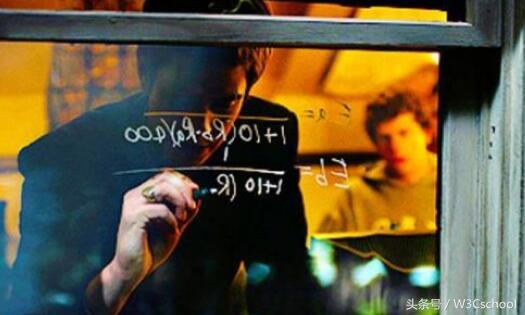 Ea =
1+10(Rb-Ra)/400
1
Eb =
1+10(R
头条号 / W3Cschool